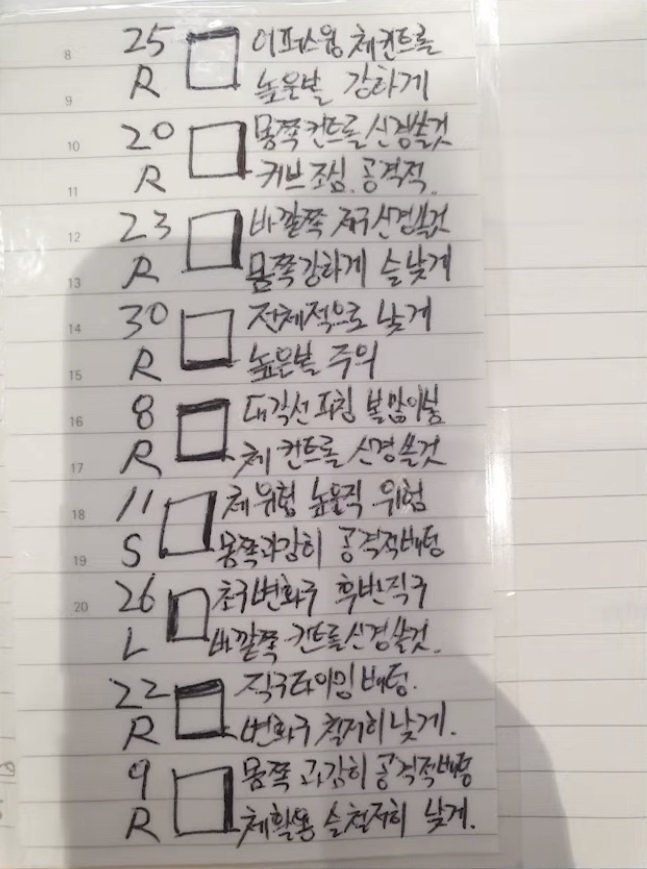 8 25 어퍼스윙 체컨트롤
9 R 높은볼 강하게
10 20 몸쪽컨트롤신경쓸것
11 R 커브조심. 공격적.
12 23 바깥쪽 제구신경쓸것
13 R 몸쪽강하게 슬낮게
14 30 전체적으로 낮게
15 R 높은볼 주의
16 8 대각선피칭 볼많이봄
17 R 체 컨트롤 신경쓸것
18 11 체위험 높을직 위험
19 S 몸쪽과감히 공격적배팅
20 26 초구변화구 후반직구
L 바깥쪽 컨트롤신경쓸것.
22 직구타이밍배팅.
R 변화구 철저히낮게.
9 몸쪽 과감히 공격적배팅
R 체활용 슬철저히 낮게.